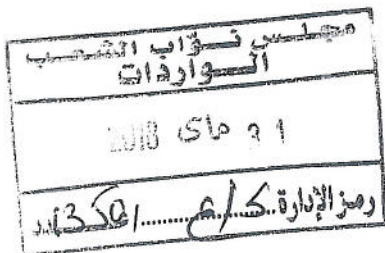 مجلس نواب الشعب
الواردات
31 ماي 2018
رمز الإدارة